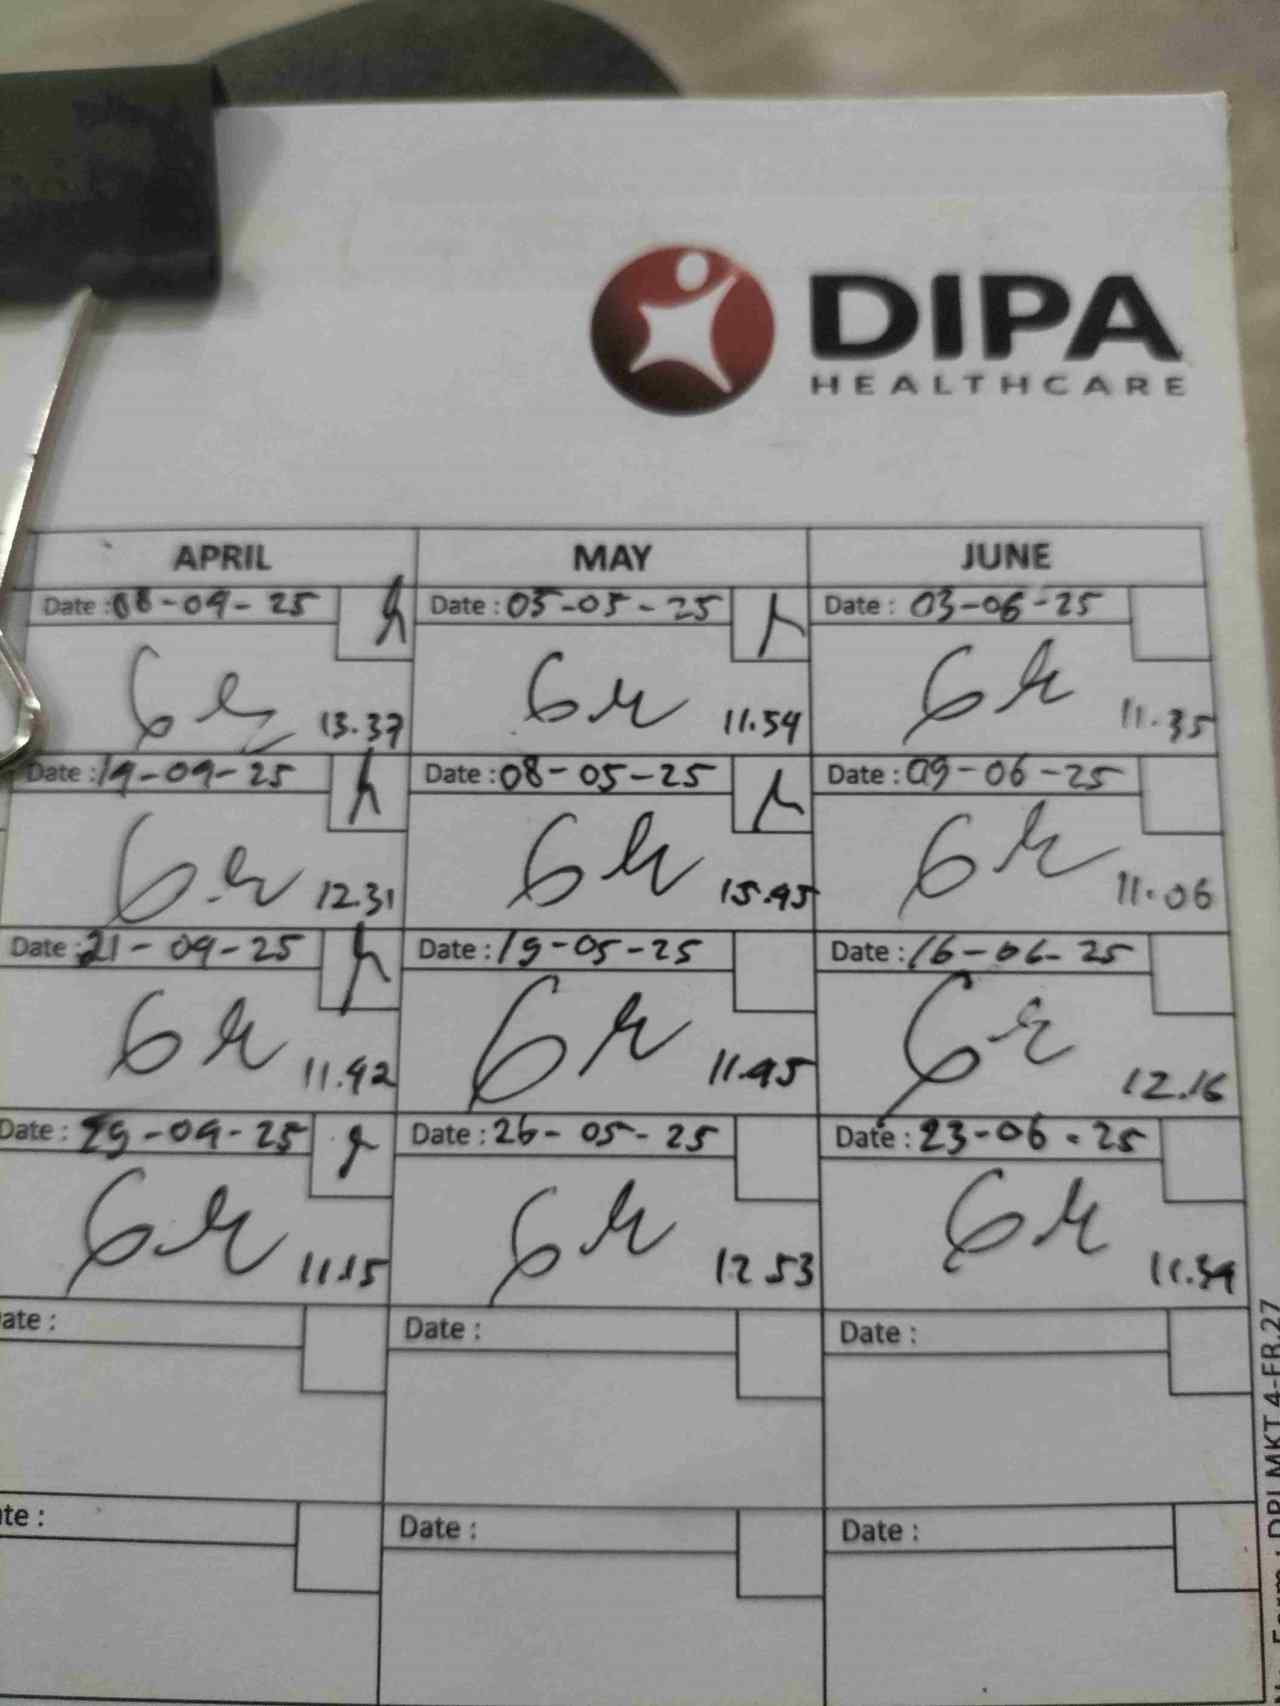 DIPA
HEALTHCARE
APRIL MAY JUNE
Date : 08-04-25 Date : 05-05-25 Date : 03-06-25
13.37 11.54 11.35
Date : 14-04-25 Date : 08-05-25 Date : 09-06-25
12.31 15.45 11.06
Date : 21-04-25 Date : 19-05-25 Date : 16-06-25
11.42 11.45 12.16
Date : 29-04-25 Date : 26-05-25 Date : 23-06-25
11.15 12.53 11.34
ate : Date : Date :
te : Date : Date :
Form : DPI.MKT.4-FR.27